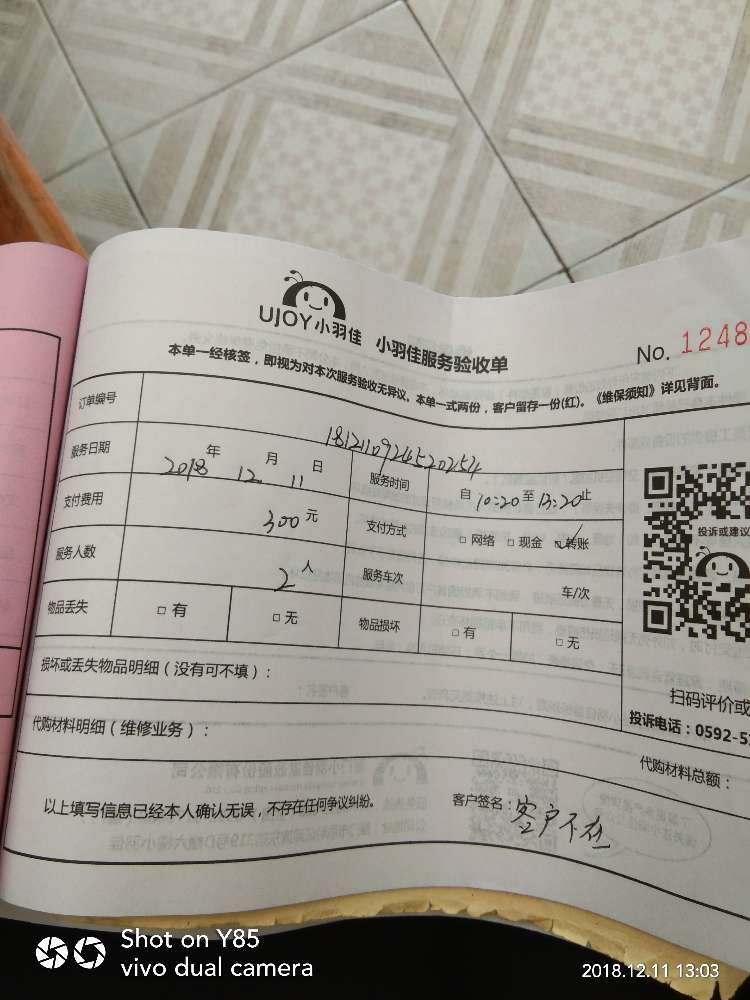 UJOY小羽佳 小羽佳服务验收单
No. 1248
本单一经核签，即视为对本次服务验收无异议。本单一式两份，客户留存一份(红)。《维保须知》详见背面。
订单编号 181211092452025
服务日期 2018年12月11日 服务时间 自10:20至13:20止
支付费用 300元 支付方式 □网络 □现金 ☑转账
服务人数 2人 服务车次 车/次
物品丢失 □有 □无 物品损坏 □有 □无
投诉或建议
损坏或丢失物品明细（没有可不填）：
扫码评价或
投诉电话：0592-5
代购材料明细（维修业务）：
代购材料总额：
以上填写信息已经本人确认无误，不存在任何争议纠纷。 客户签名：客户不在
Shot on Y85
vivo dual camera
2018.12.11 13:03